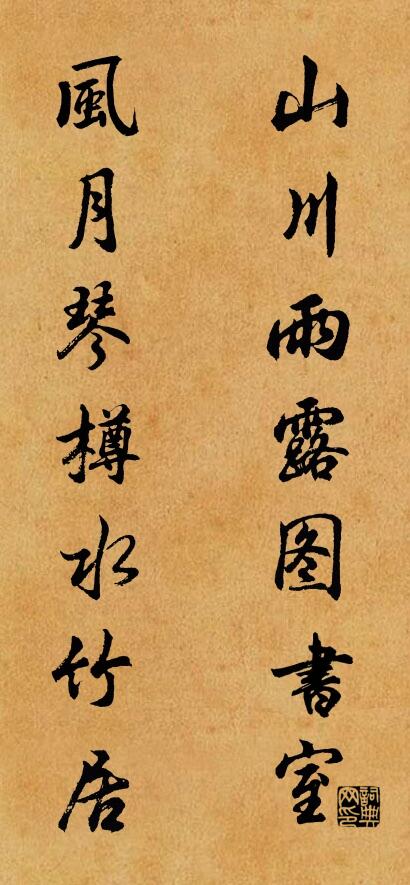 山川雨露图書室
風月琴樽水竹居
詞典網印